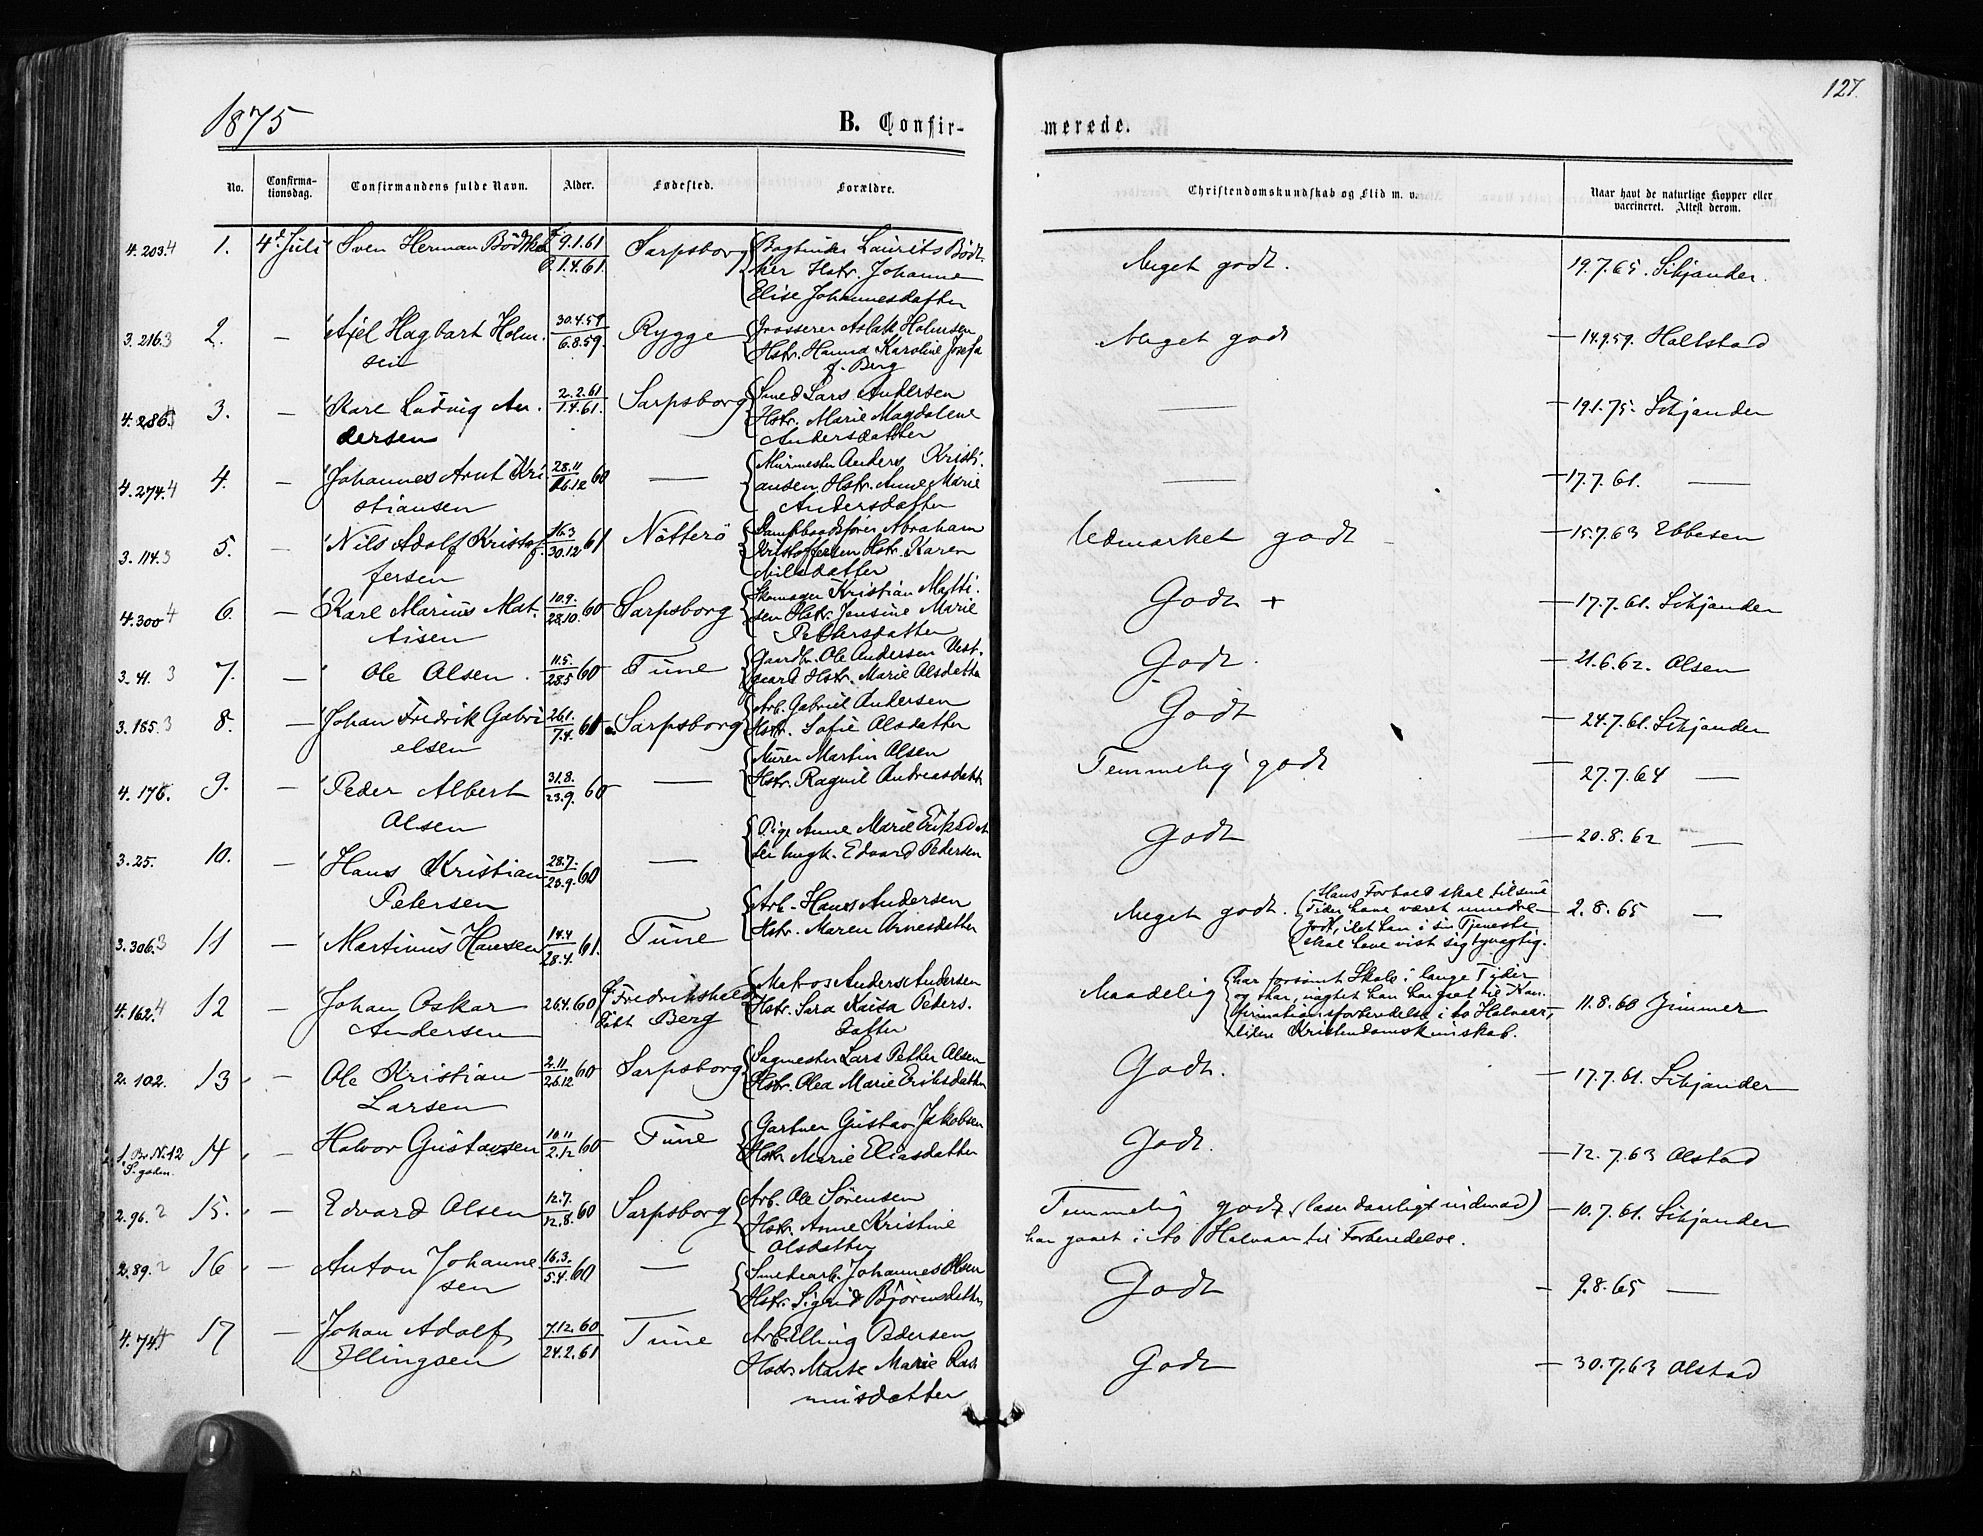 127.
1875
B. Confir-
merede.
No.
Confirma-
tionsdag.
Confirmandens fulde Navn.
Alder.
Fødested.
Forældre.
Christendomskundskab og Flid m. v.
Naar havt de naturlige Kopper eller
vaccineret. Attest derom.
4.203.4 1. 4de Juli Sven Herman Bödtker f 9.1.61 Sarpsborg Laurits Bödt-
1.4.61 ker Hstr. Johanne
Elise Johannesdatter
Meget godt. 19.7.65.
3.216.3 2. — Axel Hagbart Holm- 30.4.59 Rygge Grosserer Aslak Holmsen
sen 6.8.59. Hstr. Hanna Karoline Josefa
f. Berg
Meget godt — 14.9.59. Hallstad
4.286. 3. — Karl Ludvig An- 2.2.61 Sarpsborg Smed Lars Andersen
dersen 1.4.61. Hstr. Marie Magdalene
Andersdatter
— — 19.1.75.
4.274.4 4. — Johannes Arnt Kri- 28.11 — Murmester Anders Kristi-
stiansen 26.12 60 ansen Hstr. Anne Marie
Andersdatter
— — 17.7.61. —
3.114.3 5. — Nils Adolf Kristof- 16.3 Nötterö Dampbaadsfører Abraham
fersen 30.12 61 Kristoffersen Hstr. Karen
Nilsdatter
Udmærket godt — 15.7.63 Ebbesen
4.300 4 6. — Karl Marius Mat- 10.9. Sarpsborg Skomager Kristian Matti-
tisen 28.10. 60 sen Hstr. Jensine Marie
Pettersdatter
Godt + — 17.7.61.
3.41. 3 7. — Ole Olsen 11.5. Tune Gaardbr. Ole Andersen Vest-
28.5 60 gaard Hstr. Marie Olsdatter
Godt. — 21.6.62. Olsen
3.185.3 8. — Johan Fredrik Gabri- 26.1. Sarpsborg Arb. Gabriel Andersen
elsen 7.4. 60 Hstr. Sofie Olsdatter
Godt — 24.7.61.
4.176. 9. — Peder Albert 31.8. — Murer Martin Olsen
Olsen 23.9. 60 Hstr. Ragnil Andreasdatt
Temmelig godt — 27.7.64 —
3.25. 10. — Hans Kristian 28.7. — Pige Anne Marie Eriksdat
Petersen 23.9. 60 Edvard Pedersen
Godt — 20.8.62 —
3.306.3 11 — Martinus Hansen 14.4 Tune Arb. Hans Andersen
28.4. 61. Hstr. Maren Arnesdatter
Meget godt. Hans Forhold skal tilsine
Tider have været mindre
godt, idet han i sin Tjeneste
skal have vist sig tyvagtig.
2.8.65 —
4.162.4 12 — Johan Oskar 26.4.60 f Fredrikshald Matros Anders Andersen
Andersen döbt Berg Hstr. Sara Kaisa Peders-
datter
Maadelig har forsømt Skole i lange Tider
og har, uagtet han har gaaet til Kon-
firmationsforberedelse i to Halvaar,
liden Kristendomskunskab.
11.8.60 Zimmer
2.102. 13 — Ole Kristian 2.11 Sarpsborg Sagmester Lars Petter Olsen
Larsen 26.12 60 Hstr. Olea Marie Eriksdatter
Godt. — 17.7.61.
14 — Halvor Gustavsen 10.11 Tune Gartner Gustav Jakobsen
2.12 60 Hstr. Marie Eliasdatter
Godt. — 12.7.63 Olstad
2.96.2 15. — Edvard Olsen 12.7. Sarpsborg Arb. Ole Sørensen
12.8. 60 Hstr. Anne Kristine
Olsdatter
Temmelig godt, (læser daarligt indenad)
har gaaet i to Halvaar til Forberedelse.
— 10.7.61.
2.89.2 16 — Anton Johanne 16.3. — Smedearb. Johannes Olsen
sen 5.4. 60 Hstr. Sigrid Björnsdatter
Godt — 9.8.65 —
4.74 17 — Johan Adolf 7.12.60 Tune Arb. Elling Pedersen
Ellingsen 24.2.61 Hstr. Marte Marie Ras-
musdatter
Godt — 30.7.63 Olstad